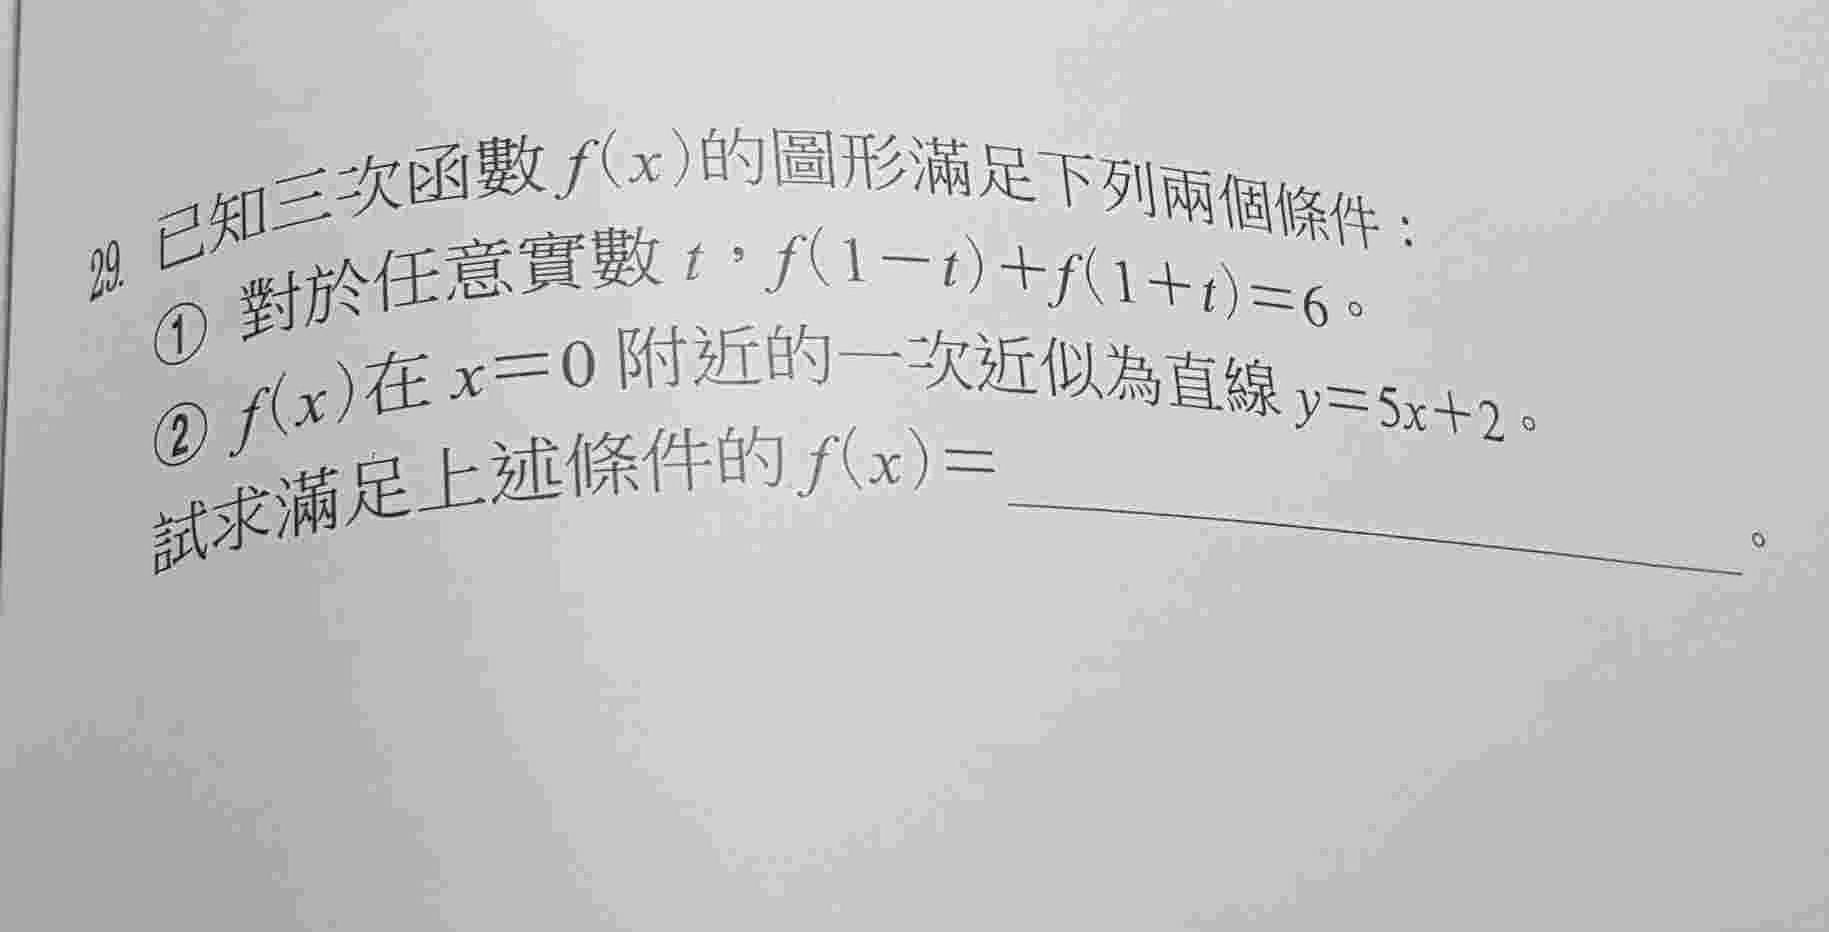 29. 已知三次函數 f(x)的圖形滿足下列兩個條件：
① 對於任意實數 t，f(1－t)＋f(1＋t)＝6。
② f(x)在 x＝0 附近的一次近似為直線 y＝5x＋2。
試求滿足上述條件的 f(x)＝＿＿＿＿＿＿＿＿。